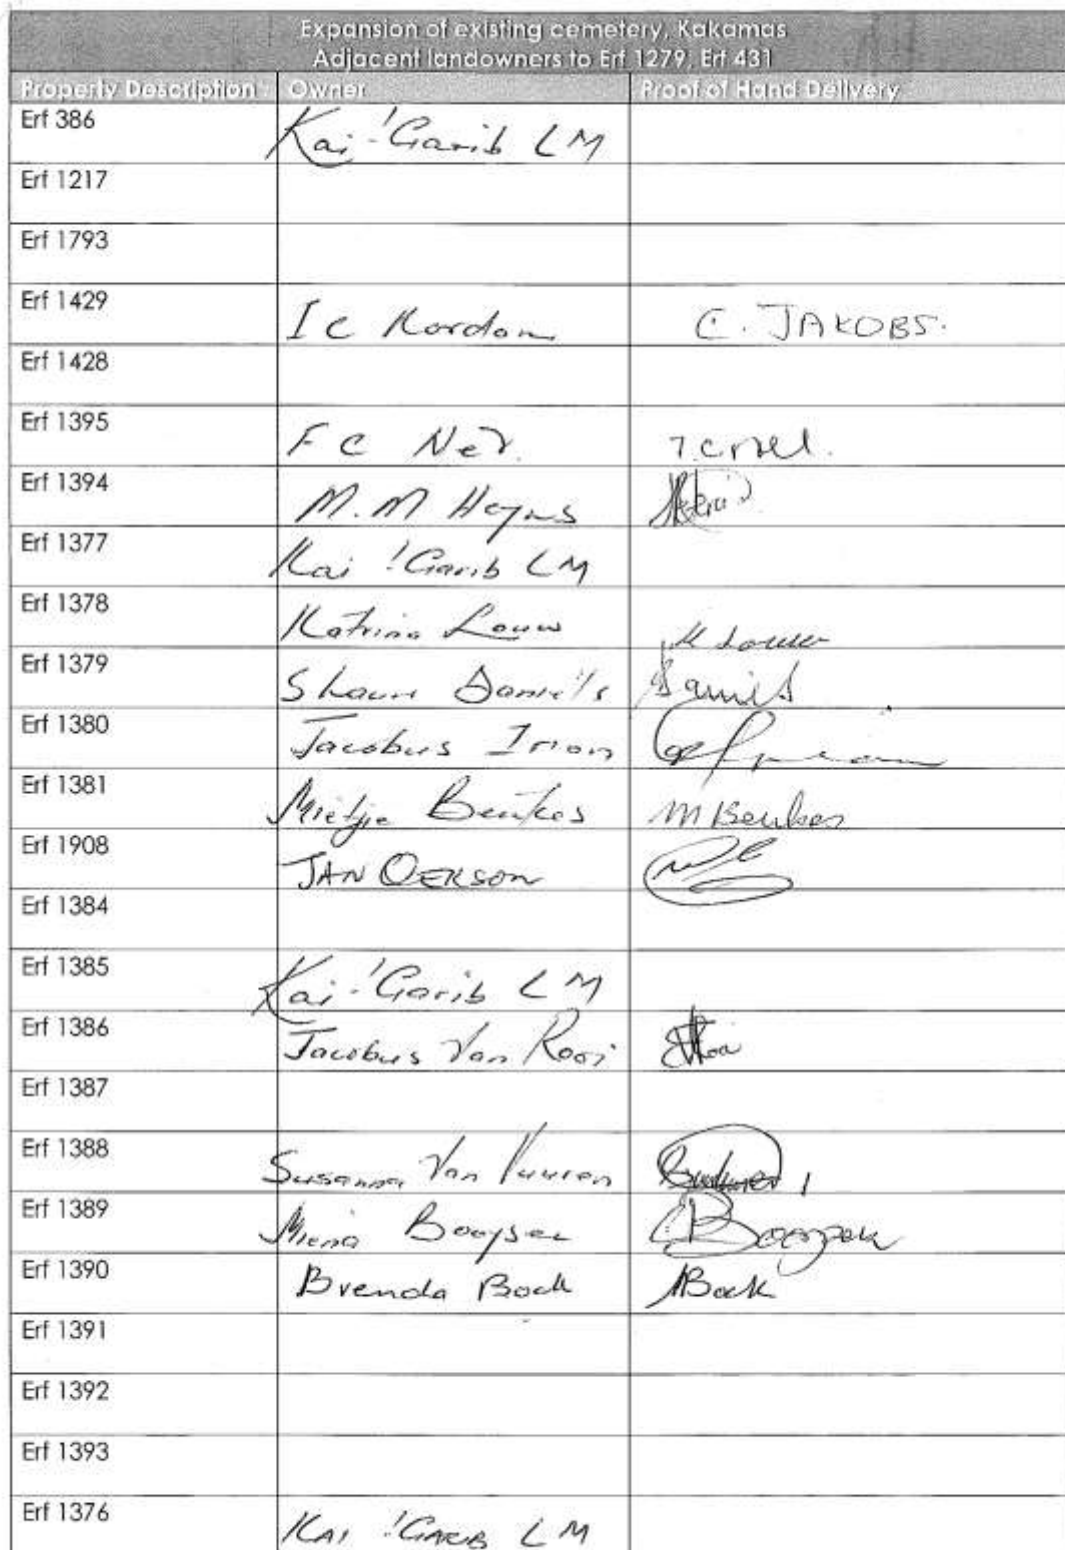 Expansion of existing cemetery, Kakamas
Adjacent landowners to Erf 1279, Erf 431
Property Description Owner Proof of Hand Delivery
Erf 386 Kai !Garib LM
Erf 1217
Erf 1793
Erf 1429 I C C. JAKOBS.
Erf 1428
Erf 1395 F C
Erf 1394 M.M Heyns
Erf 1377 Kai !Garib LM
Erf 1378 Katrina Louw K Louw
Erf 1379 Shaun Daniels Daniels
Erf 1380 Jacobus
Erf 1381 Mietjie Beukes M Beukes
Erf 1908 JAN OERSON
Erf 1384
Erf 1385 Kai !Garib LM
Erf 1386 Jacobus Van Rooi
Erf 1387
Erf 1388 Susanna Van Vuuren
Erf 1389 Miena Booysen
Erf 1390 Brenda Bock Bock
Erf 1391
Erf 1392
Erf 1393
Erf 1376 KAI !GARIB LM